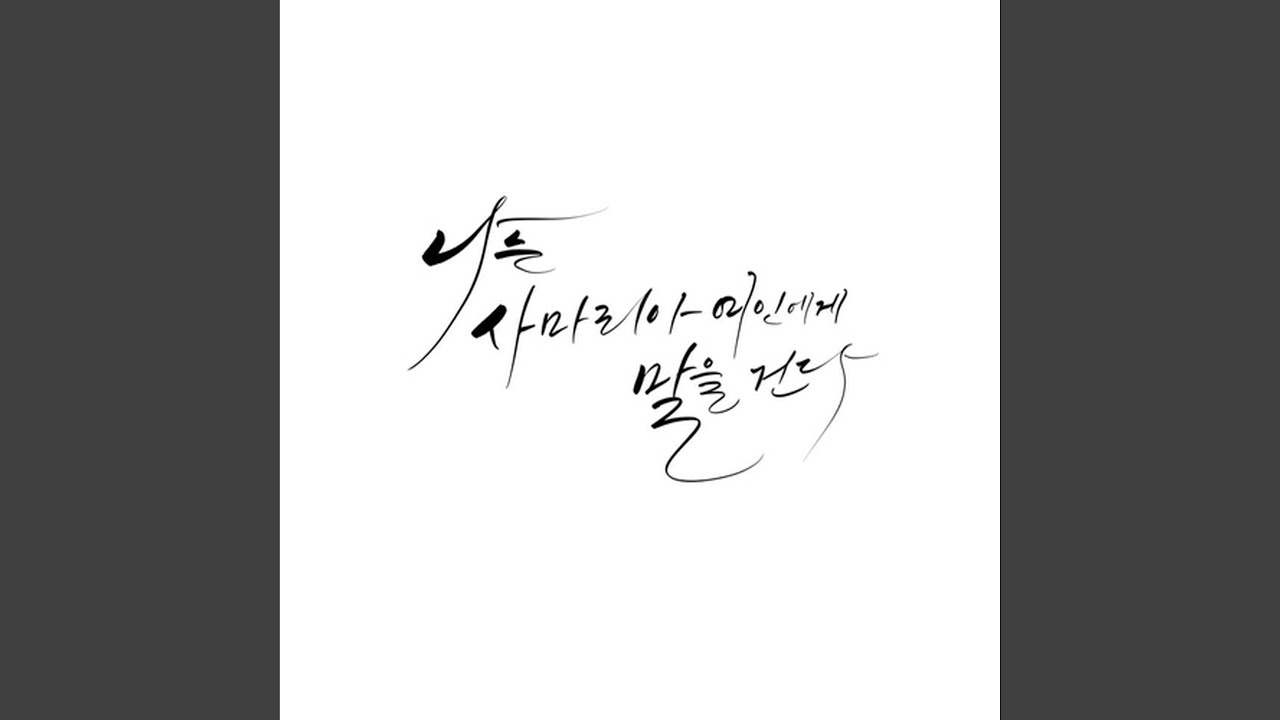 나는
사마리아 여인에게
말을 건다